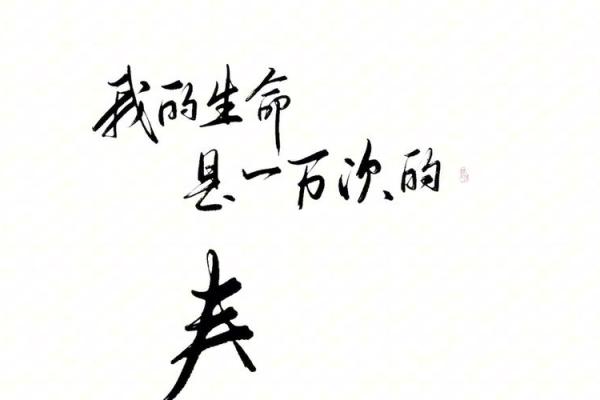 我的生命
是一万次的